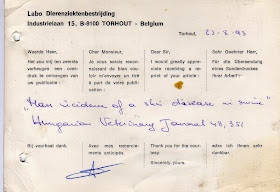 Labo Dierenziektenbestrijding
Industrielaan 15. B-8100 TORHOUT - Belgium
Torhout, 23-8-93
Waarde Heer,
Het zou mij ten zeerste
verheugen een overdruk
te ontvangen van uw
publikatie:
Cher Monsieur,
Je vous serais reconnaissant
de bien vouloir
m'envoyer un tiré
à part de votre publication:
Dear Sir,
I would greatly
appreciate receiving a reprint
of your article:
Sehr Geehrter Herr,
Für die Übersendung
eines Sonderdruckes
Ihrer Arbeit:
of a skin disease in swine
Hungarian Veterinary Journal 48, 351
Bij voorbaat dank.
Avec mes remerciements
anticipés.
Thank you for the courtesy.
Sincerely yours.
wäre ich Ihnen sehr
dankbar.